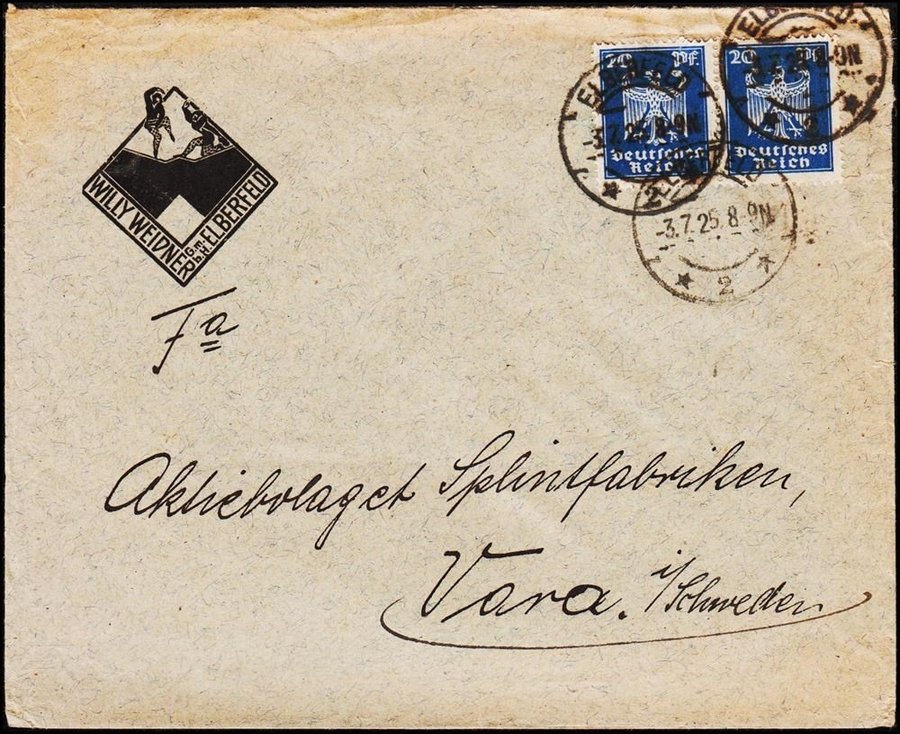 WILLY WEIDNER G.m.b.H. ELBERFELD
20 Pf.
Deutsches
Reich
20 Pf.
Deutsches
Reich
ELBERFELD
3.7.25.8-9N
2
ELBERFELD
3.7.25 8-9N
-3.7.25.8-9N
2
Fa
Aktiebolaget Splintfabriken,
Vara. i/Schweden